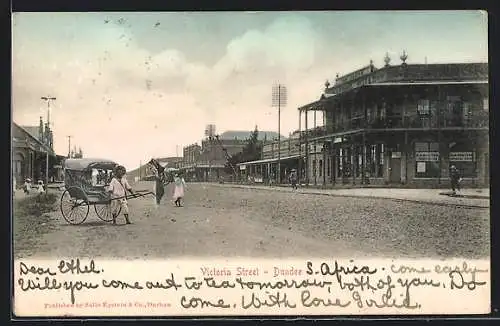 Victoria Street - Dundee S. Africa
Dear Ethel. come early
Will you come out to tea tomorrow, both of you, Do
come. With love Girlie.
Published by Sallo Epstein & Co., Durban